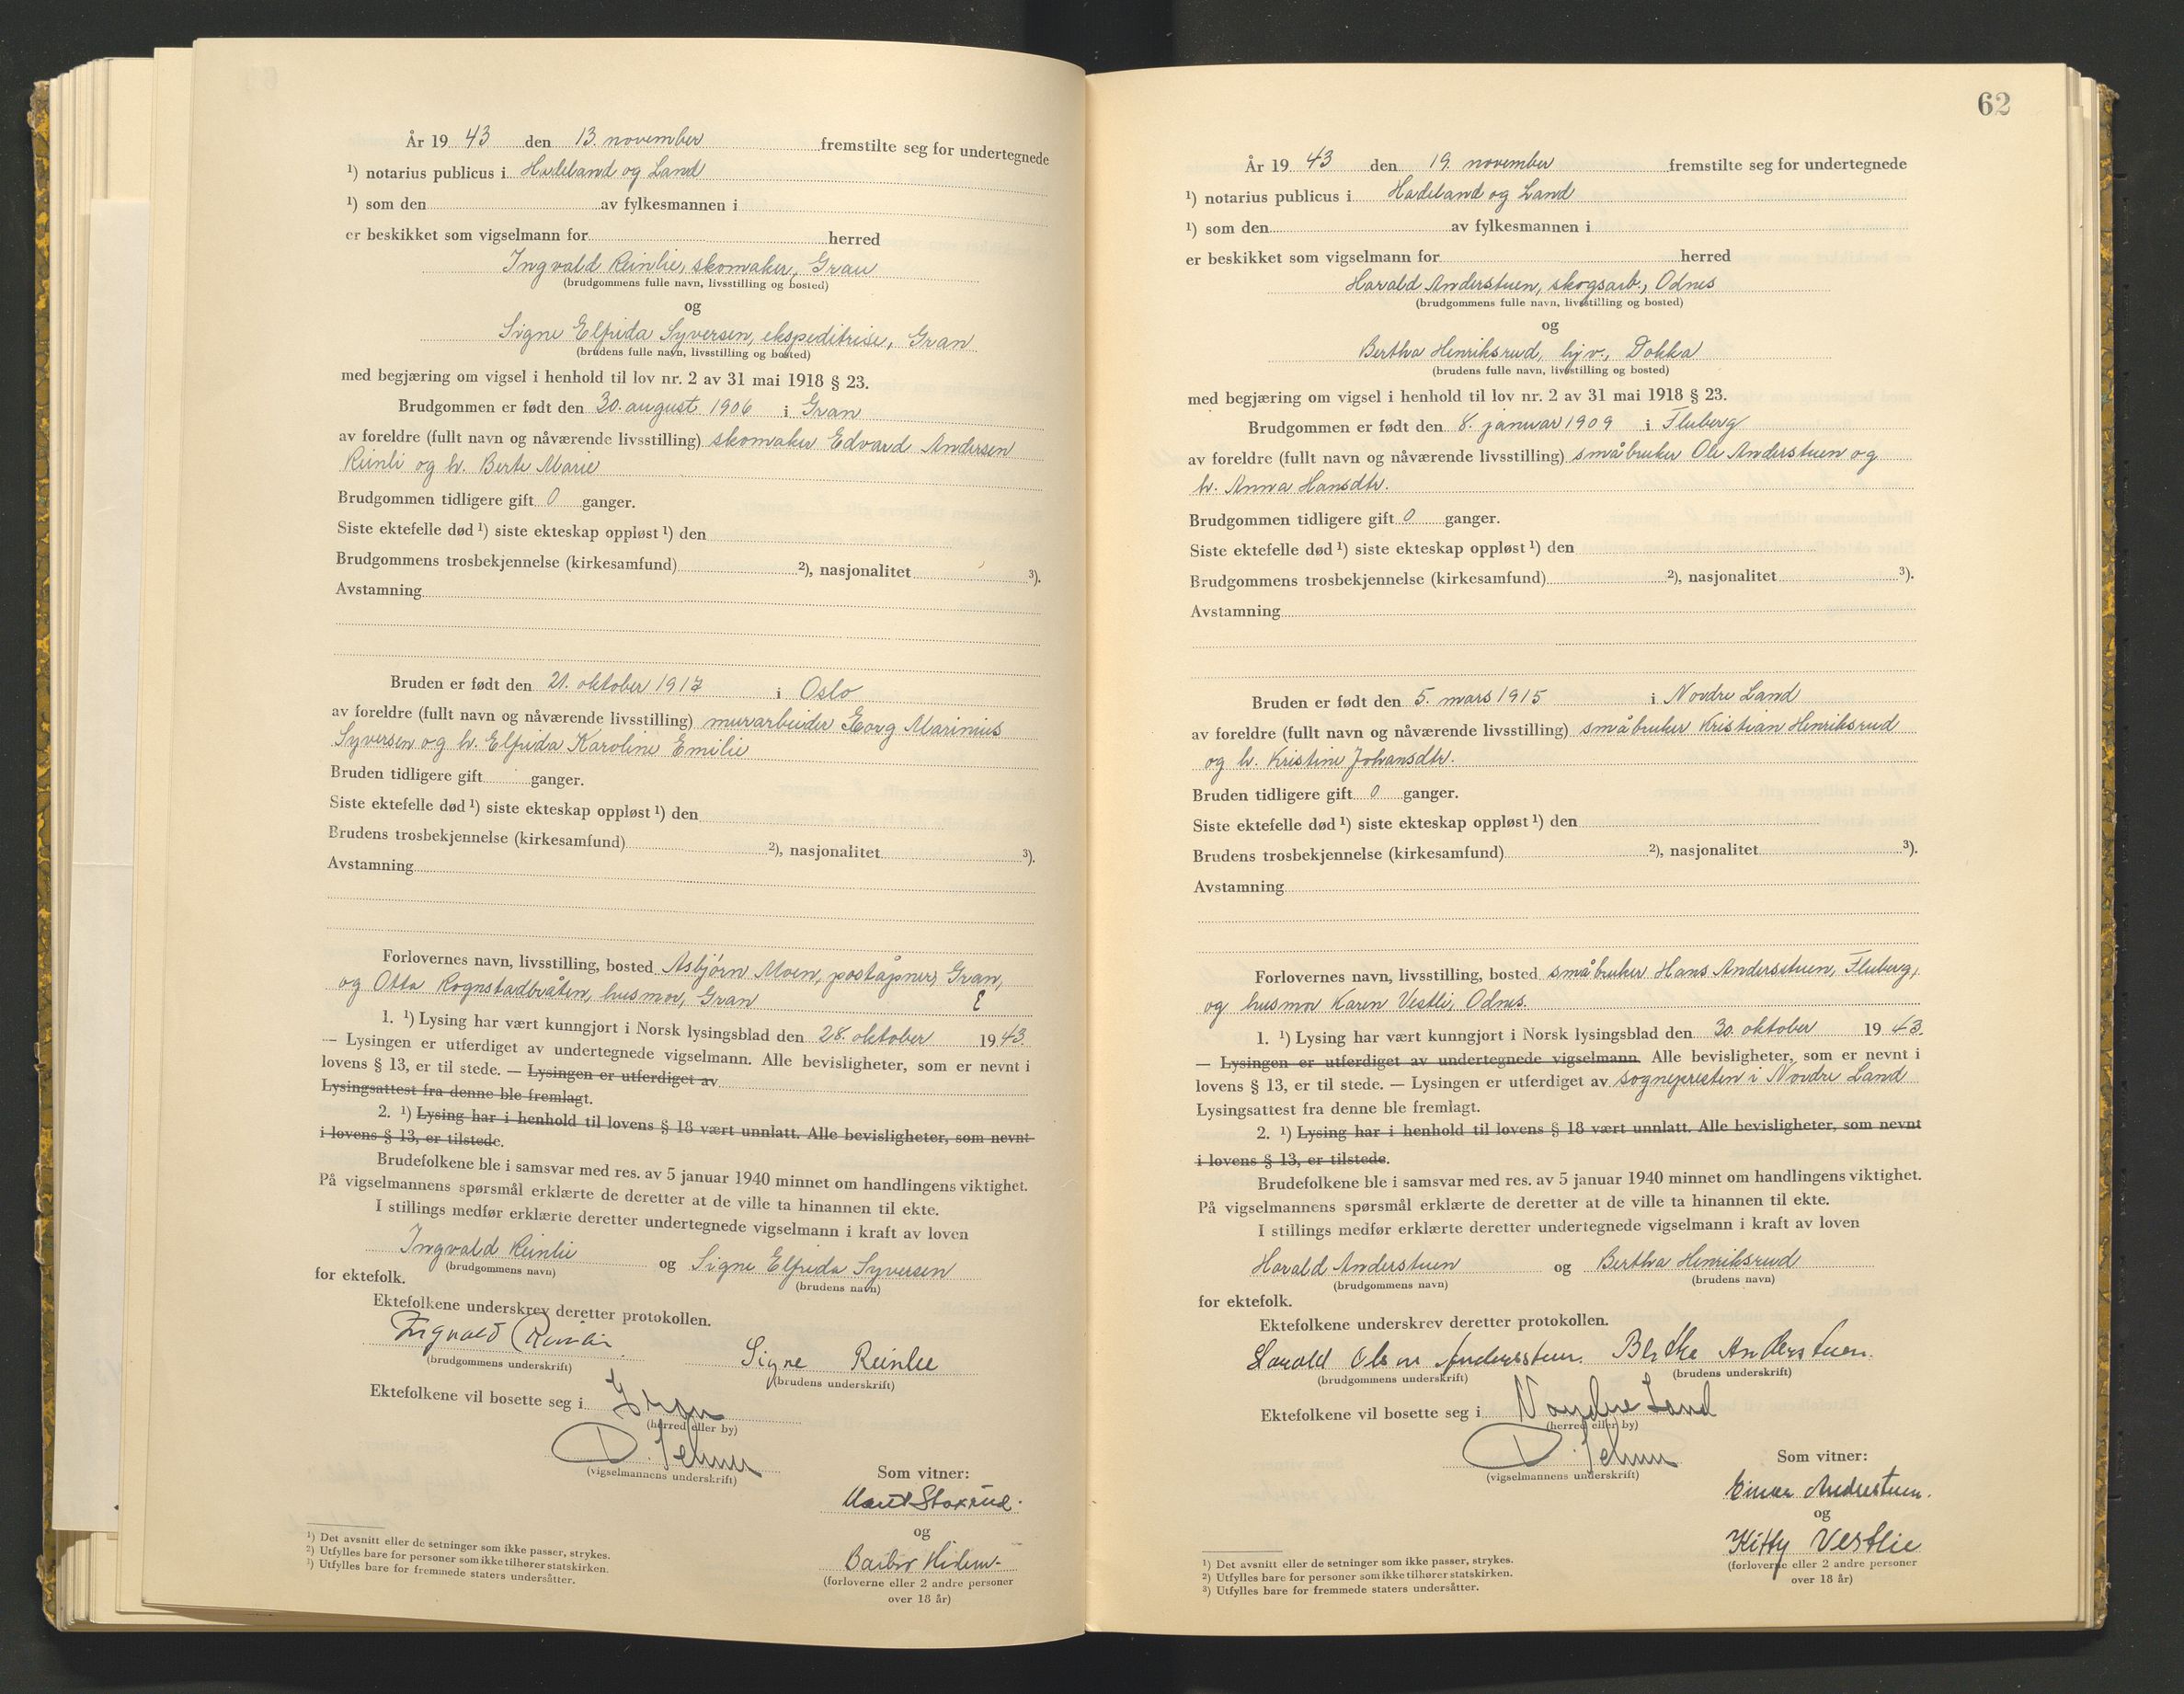 År 19 43 den 13. november fremstilte seg for undertegnede
¹) notarius publicus i Hadeland og Land
¹) som den av fylkesmannen i
er beskikket som vigselmann for herred
Ingvald Reinlie, skomaker, Gran
(brudgommens fulle navn, livsstilling og bosted)
og
Signe Elfrida Syversen, ekspeditrise, Gran
(brudens fulle navn, livsstilling og bosted)
med begjæring om vigsel i henhold til lov nr. 2 av 31 mai 1918 § 23.
Brudgommen er født den 30. august 1906 i Gran
av foreldre (fullt navn og nåværende livsstilling) skomaker Edvard Andersen
Reinli og h. Berte Marie
Brudgommen tidligere gift 0 ganger.
Siste ektefelle død ¹) siste ekteskap oppløst ¹) den
Brudgommens trosbekjennelse (kirkesamfund) ²), nasjonalitet ³).
Avstamning
Bruden er født den 21. oktober 1917 i Oslo
av foreldre (fullt navn og nåværende livsstilling) murarbeider Georg Marinius
Syversen og h. Elfrida Karoline Emilie
Bruden tidligere gift ganger.
Siste ektefelle død ¹) siste ekteskap oppløst ¹) den
Brudens trosbekjennelse (kirkesamfund) ²), nasjonalitet ³).
Avstamning
Forlovernes navn, livsstilling, bosted Asbjörn Moen, poståpner, Gran,
og Otta Rognstadbråten, husmor, Gran
1. ¹) Lysing har vært kunngjort i Norsk lysingsblad den 28. oktober 19 43.
— Lysingen er utferdiget av undertegnede vigselmann. Alle bevisligheter, som er nevnt i
lovens § 13, er til stede. — Lysingen er utferdiget av
Lysingsattest fra denne ble fremlagt.
2. ¹) Lysing har i henhold til lovens § 18 vært unnlatt. Alle bevisligheter, som nevnt
i lovens § 13, er tilstede.
Brudefolkene ble i samsvar med res. av 5 januar 1940 minnet om handlingens viktighet.
På vigselmannens spørsmål erklærte de deretter at de ville ta hinannen til ekte.
I stillings medfør erklærte deretter undertegnede vigselmann i kraft av loven
Ingvald Reinlie og Signe Elfrida Syversen
(brudgommens navn) (brudens navn)
for ektefolk.
Ektefolkene underskrev deretter protokollen.
Ingvald Reinlie Signe Reinlie
(brudgommens underskrift) (brudens underskrift)
Ektefolkene vil bosette seg i Gran
(herred eller by)
(vigselmannens underskrift)
Som vitner:
og
(forloverne eller 2 andre personer
over 18 år)
¹) Det avsnitt eller de setninger som ikke passer, strykes.
²) Utfylles bare for personer som ikke tilhører statskirken.
³) Utfylles bare for fremmede staters undersåtter.
62
År 19 43 den 19. november fremstilte seg for undertegnede
¹) notarius publicus i Hadeland og Land
¹) som den av fylkesmannen i
er beskikket som vigselmann for herred
Harald Anderstuen, skogsarb., Odnes
(brudgommens fulle navn, livsstilling og bosted)
og
Bertha Henriksrud, hj.v., Dokka
(brudens fulle navn, livsstilling og bosted)
med begjæring om vigsel i henhold til lov nr. 2 av 31 mai 1918 § 23.
Brudgommen er født den 8. januar 1909 i Fluberg
av foreldre (fullt navn og nåværende livsstilling) småbruker Ole Anderstuen og
h. Anna Hansdtr.
Brudgommen tidligere gift 0 ganger.
Siste ektefelle død ¹) siste ekteskap oppløst ¹) den
Brudgommens trosbekjennelse (kirkesamfund) ²), nasjonalitet ³).
Avstamning
Bruden er født den 5. mars 1915 i Nordre Land
av foreldre (fullt navn og nåværende livsstilling) småbruker Kristian Henriksrud
og h. Kristine Johansdtr.
Bruden tidligere gift 0 ganger.
Siste ektefelle død ¹) siste ekteskap oppløst ¹) den
Brudens trosbekjennelse (kirkesamfund) ²), nasjonalitet ³).
Avstamning
Forlovernes navn, livsstilling, bosted småbruker Hans Andersstuen, Fluberg,
og husmor Karen Vestli, Odnes.
1. ¹) Lysing har vært kunngjort i Norsk lysingsblad den 30. oktober 19 43.
— Lysingen er utferdiget av undertegnede vigselmann. Alle bevisligheter, som er nevnt i
lovens § 13, er til stede. — Lysingen er utferdiget av sognepresten i Nordre Land
Lysingsattest fra denne ble fremlagt.
2. ¹) Lysing har i henhold til lovens § 18 vært unnlatt. Alle bevisligheter, som nevnt
i lovens § 13, er tilstede.
Brudefolkene ble i samsvar med res. av 5 januar 1940 minnet om handlingens viktighet.
På vigselmannens spørsmål erklærte de deretter at de ville ta hinannen til ekte.
I stillings medfør erklærte deretter undertegnede vigselmann i kraft av loven
Harald Anderstuen og Bertha Henriksrud
(brudgommens navn) (brudens navn)
for ektefolk.
Ektefolkene underskrev deretter protokollen.
Harald Olsen Andersstuen. Berthe Anderstuen.
(brudgommens underskrift) (brudens underskrift)
Ektefolkene vil bosette seg i Nordre Land
(herred eller by)
(vigselmannens underskrift)
Som vitner:
Einar Anderstuen.
og
Kitty Vestlie
(forloverne eller 2 andre personer
over 18 år)
¹) Det avsnitt eller de setninger som ikke passer, strykes.
²) Utfylles bare for personer som ikke tilhører statskirken.
³) Utfylles bare for fremmede staters undersåtter.